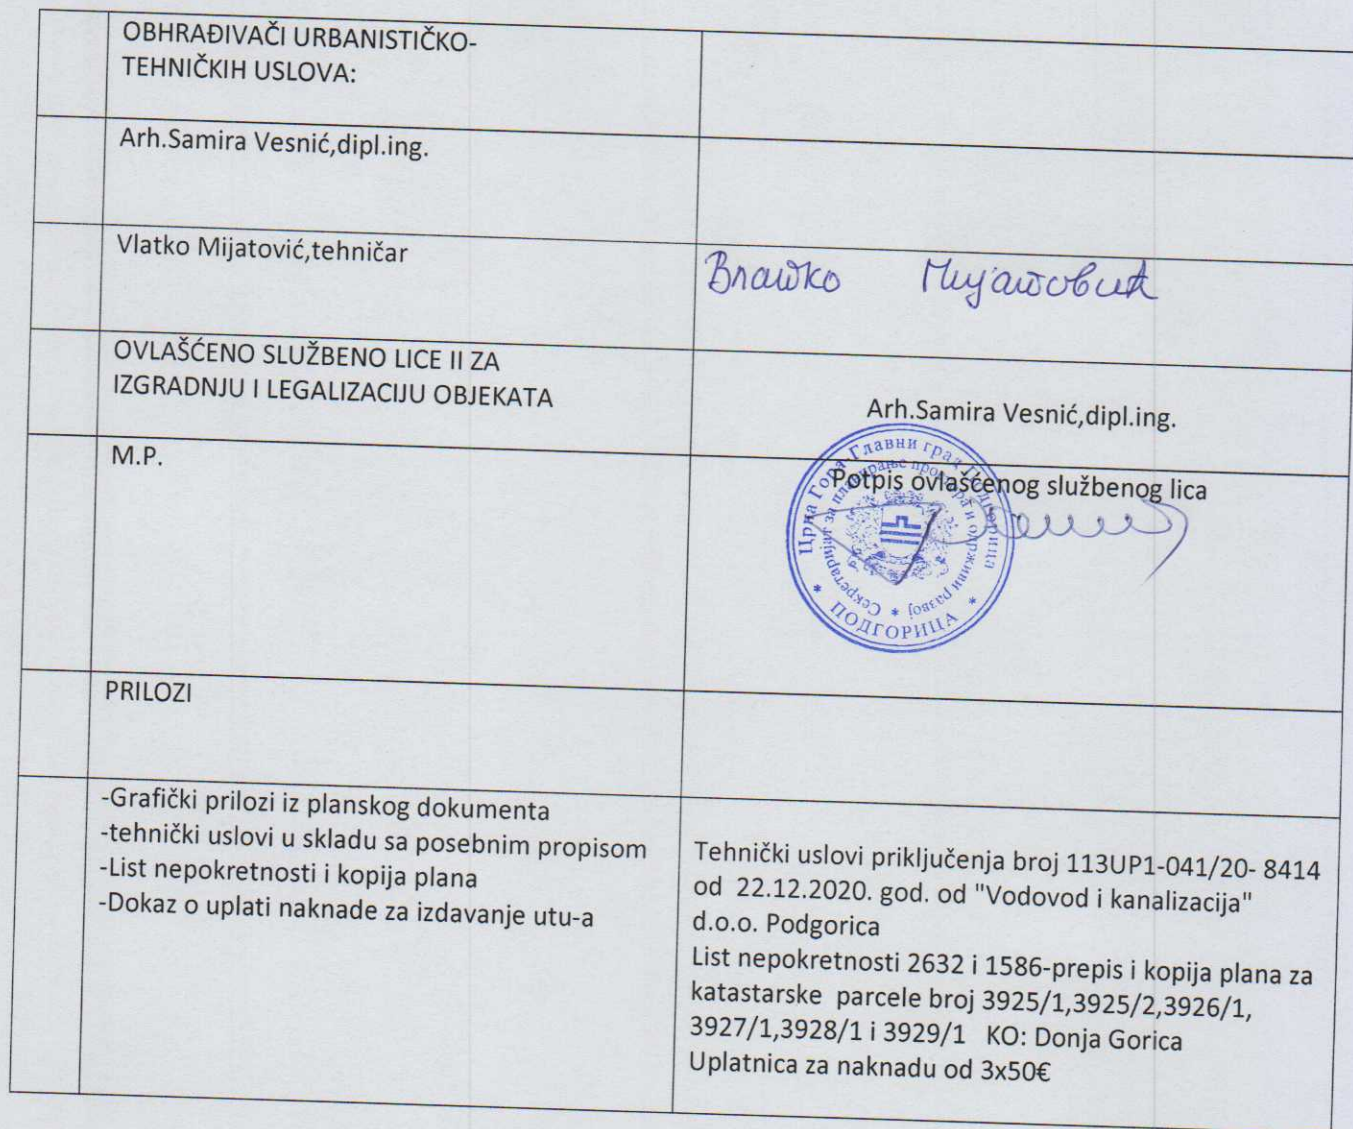 OBHRAĐIVAČI URBANISTIČKO-
TEHNIČKIH USLOVA:
Arh.Samira Vesnić,dipl.ing.
Vlatko Mijatović,tehničar
Влатко Мијатовић
OVLAŠĆENO SLUŽBENO LICE II ZA
IZGRADNJU I LEGALIZACIJU OBJEKATA
Arh.Samira Vesnić,dipl.ing.
M.P.
Potpis ovlašćenog službenog lica
Црна Гора-Главни град Подгорица
Секретаријат за планирање простора и одрживи развој
* ПОДГОРИЦА *
PRILOZI
-Grafički prilozi iz planskog dokumenta
-tehnički uslovi u skladu sa posebnim propisom
-List nepokretnosti i kopija plana
-Dokaz o uplati naknade za izdavanje utu-a
Tehnički uslovi priključenja broj 113UP1-041/20- 8414
od 22.12.2020. god. od "Vodovod i kanalizacija"
d.o.o. Podgorica
List nepokretnosti 2632 i 1586-prepis i kopija plana za
katastarske parcele broj 3925/1,3925/2,3926/1,
3927/1,3928/1 i 3929/1 KO: Donja Gorica
Uplatnica za naknadu od 3x50€